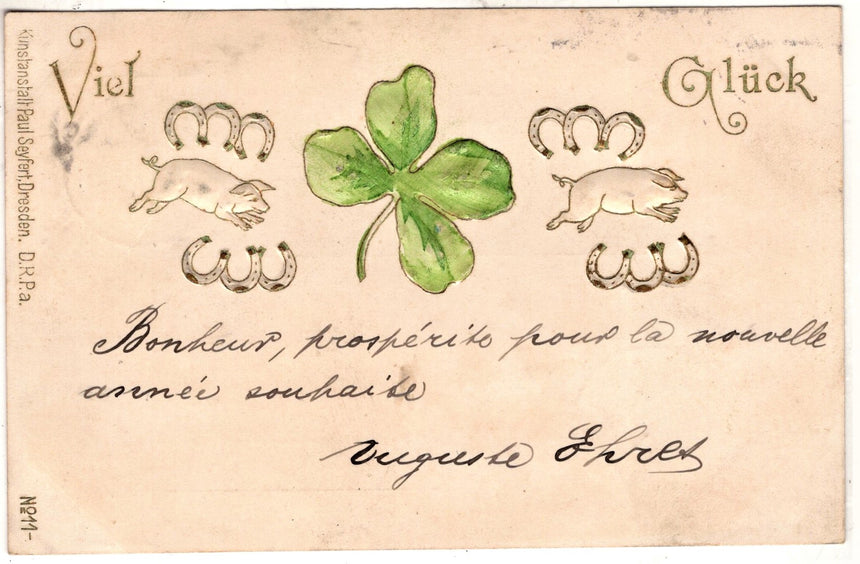 Viel Glück
Kunstanstalt Paul Seyfert, Dresden. D.R.P.a.
Bonheur, prospérite pour la nouvelle
année souhaite
Auguste Ehret
No11-